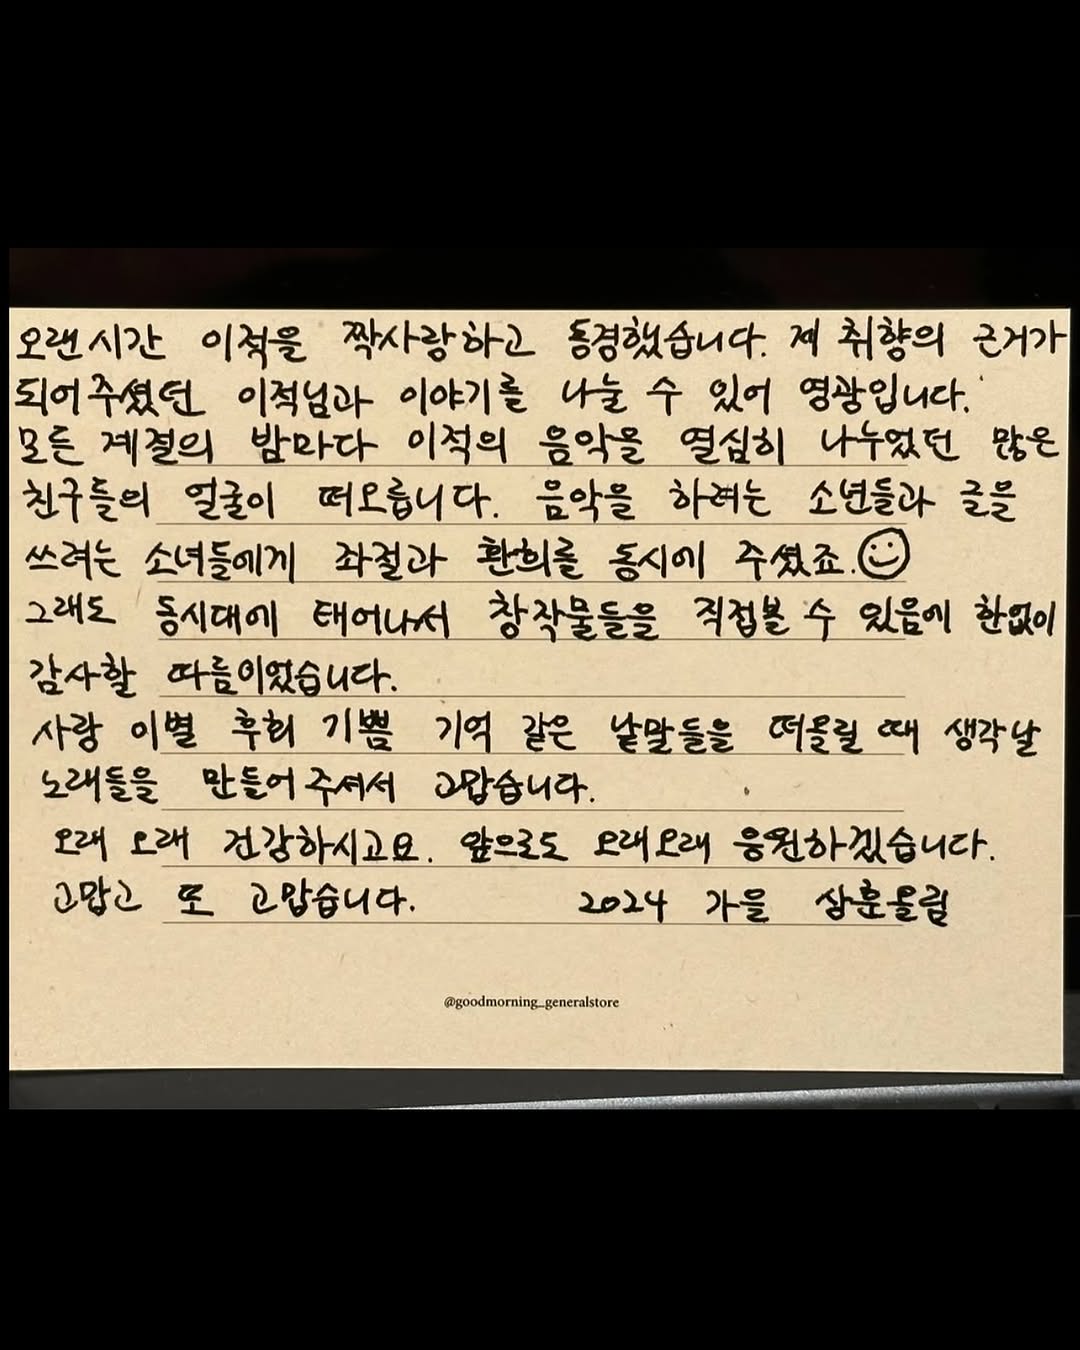 오랜시간 이적을 짝사랑하고 동경했습니다. 제 취향의 근거가
되어주셨던 이적님과 이야기를 나눌 수 있어 영광입니다.
모든 계절의 밤마다 이적의 음악을 열심히 나누었던 많은
친구들의 얼굴이 떠오릅니다. 음악을 하려는 소년들과 글을
쓰려는 소녀들에게 좌절과 환희를 동시에 주셨죠.
그래도 동시대에 태어나서 창작물들을 직접볼 수 있음에 한없이
감사할 따름이었습니다.
사랑 이별 후회 기쁨 기억 같은 낱말들을 떠올릴 때 생각날
노래들을 만들어주셔서 고맙습니다.
오래 오래 건강하시고요. 앞으로도 오래오래 응원하겠습니다.
고맙고 또 고맙습니다. 2024 가을 상훈올림
@goodmorning_generalstore